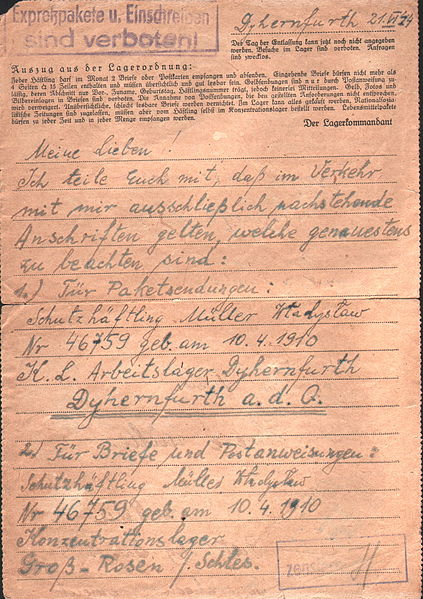 Expreßpakete u. Einschreiben
sind verboten!
Dyhernfurth 21.VI.44
Der Tag der Entlassung kann jetzt noch nicht angegeben
werden. Besuche im Lager sind verboten. Anfragen
sind zwecklos.
Auszug aus der Lagerordnung:
Jeder Häftling darf im Monat 2 Briefe oder Postkarten empfangen und absenden. Eingehende Briefe dürfen nicht mehr als
4 Seiten à 15 Zeilen enthalten und müssen übersichtlich und gut lesbar sein. Geldsendungen sind nur durch Postanweisung zu-
lässig, deren Abschnitt nur Vor-, Zuname, Geburtstag, Häftlingsnummer trägt, jedoch keinerlei Mitteilungen. Geld, Fotos und
Bildereinlagen in Briefen sind verboten. Die Annahme von Postsendungen, die den gestellten Anforderungen nicht entsprechen,
wird verweigert. Unübersichtliche, schlecht lesbare Briefe werden vernichtet. Im Lager kann alles gekauft werden. Nationalsozia-
listische Zeitungen sind zugelassen, müssen aber vom Häftling selbst im Konzentrationslager bestellt werden. Lebensmittelpakete
dürfen zu jeder Zeit und in jeder Menge empfangen werden.
Der Lagerkommandant
Meine Lieben!
Ich teile Euch mit, daß im Verkehr
mit mir ausschließlich nachstehende
Anschriften gelten, welche genauestens
zu beachten sind:
1.) Für Paketsendungen:
Schutzhäftling Müller Władysław
Nr 46759 geb. am 10.4.1910
K. L. Arbeitslager Dyhernfurth
Dyhernfurth a. d. O.
2.) Für Briefe und Postanweisungen:
Schutzhäftling Müller Władysław
Nr 46759 geb am 10.4.1910
Konzentrationslager
Groß-Rosen /Schles.